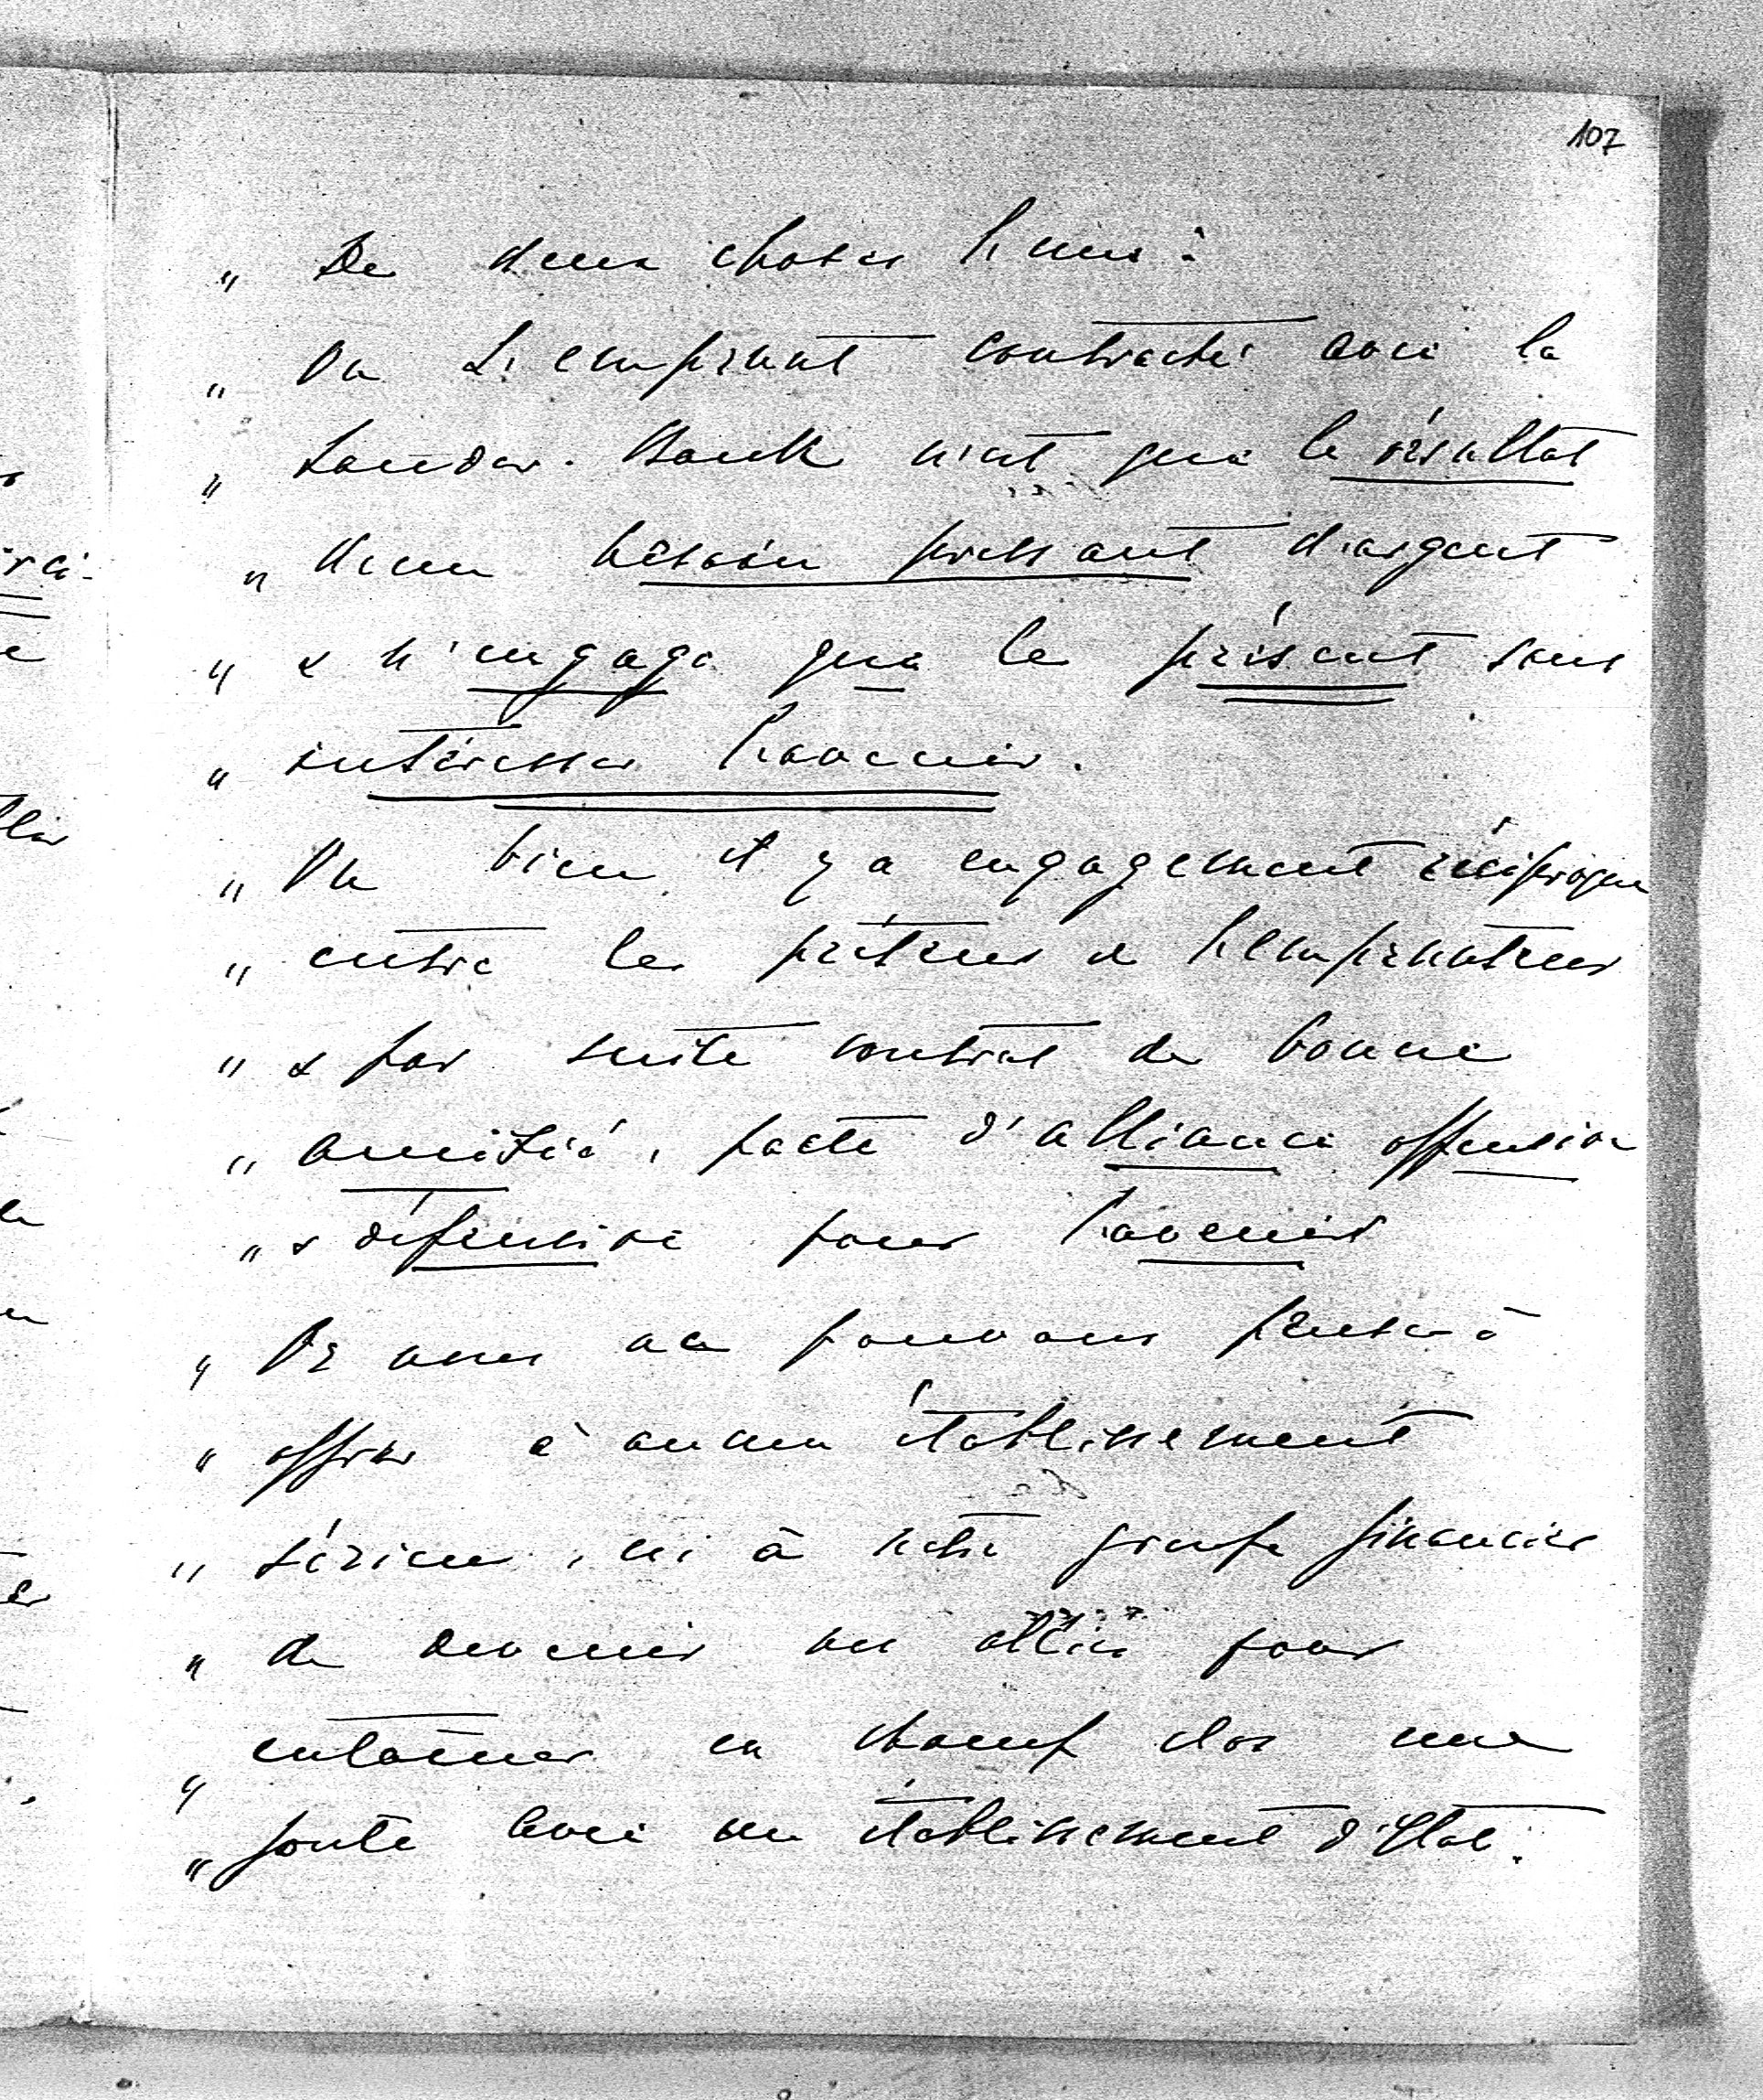 107
„ De deux choses l'une :
„ Ou L'emprunt contracté avec la
„ Lander. Bank n'est que le résultat
„ d'un besoin pressant d'argent
„ & n'engage que le présent sans
„ intéresser l'avenir.
„ Ou bien il y a engagement réciproque
„ entre les prêteurs & l'emprunteur
„ & par suite contrat de bonne
„ amitié, pacte d'alliance offensive
„ & défensive pour l'avenir
„ Or nous ne pouvons penser à
„ offrir à aucun établissement
„ sérieux, ni à notre groupe financier
„ de devenir un allié pour
„ entamer en champ clos une
„ joute avec un établissement d'Etat.